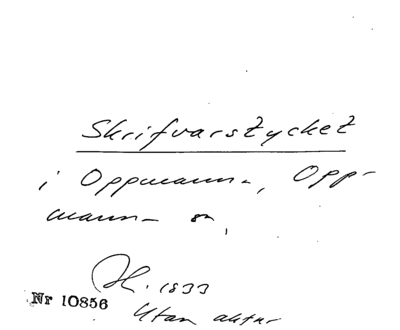 Skrifvarstycket
i Oppmanna, Opp-
manna sn,
H. 1833
Nr 10856
Utan aktnr